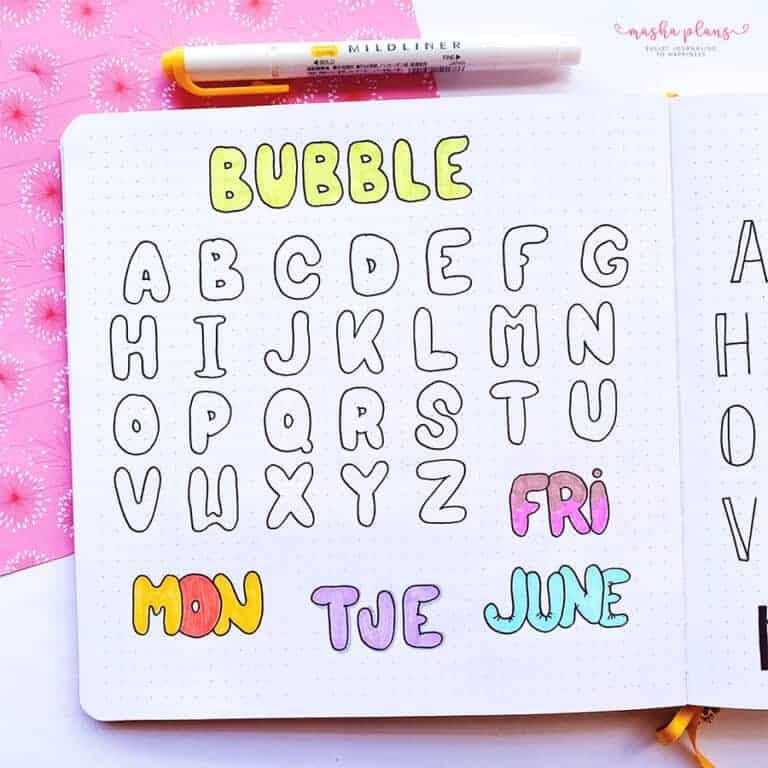 masha plans
BULLET JOURNALING
TO HAPPINESS
MILDLINER
BOLD
FINE
JAPAN
BUBBLE
A B C D E F G
H I J K L M N
O P Q R S T U
V W X Y Z
FRI
MON TUE JUNE
A
H
O
V